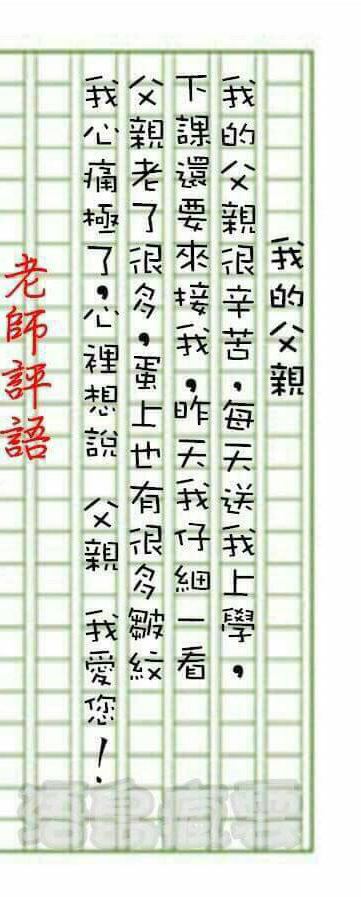 我的父親
我的父親很辛苦,每天送我上學,
下課還要來接我,昨天我仔細一看
父親老了很多,蛋上也有很多皺紋
我心痛極了,心裡想說 父親 我愛您!
老師評語